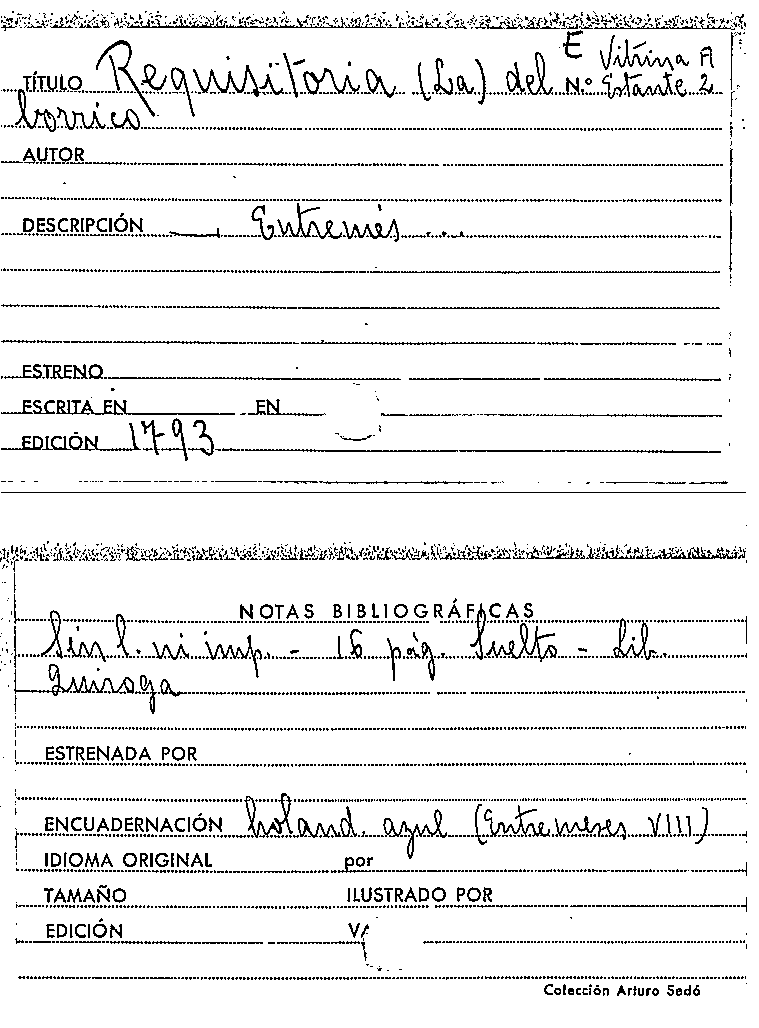 E Vitrina A
TÍTULO Requisitoria (La) del N.º Estante 2
borrico
AUTOR
DESCRIPCIÓN Entremés ...
ESTRENO
ESCRITA EN EN
EDICIÓN 1793
NOTAS BIBLIOGRÁFICAS
Sin l. ni imp. - 16 pág. Suelto - Lib.
Quiroga
ESTRENADA POR
ENCUADERNACIÓN holand. azul (Entremeses VIII)
IDIOMA ORIGINAL por
TAMAÑO ILUSTRADO POR
EDICIÓN
Colección Arturo Sedó